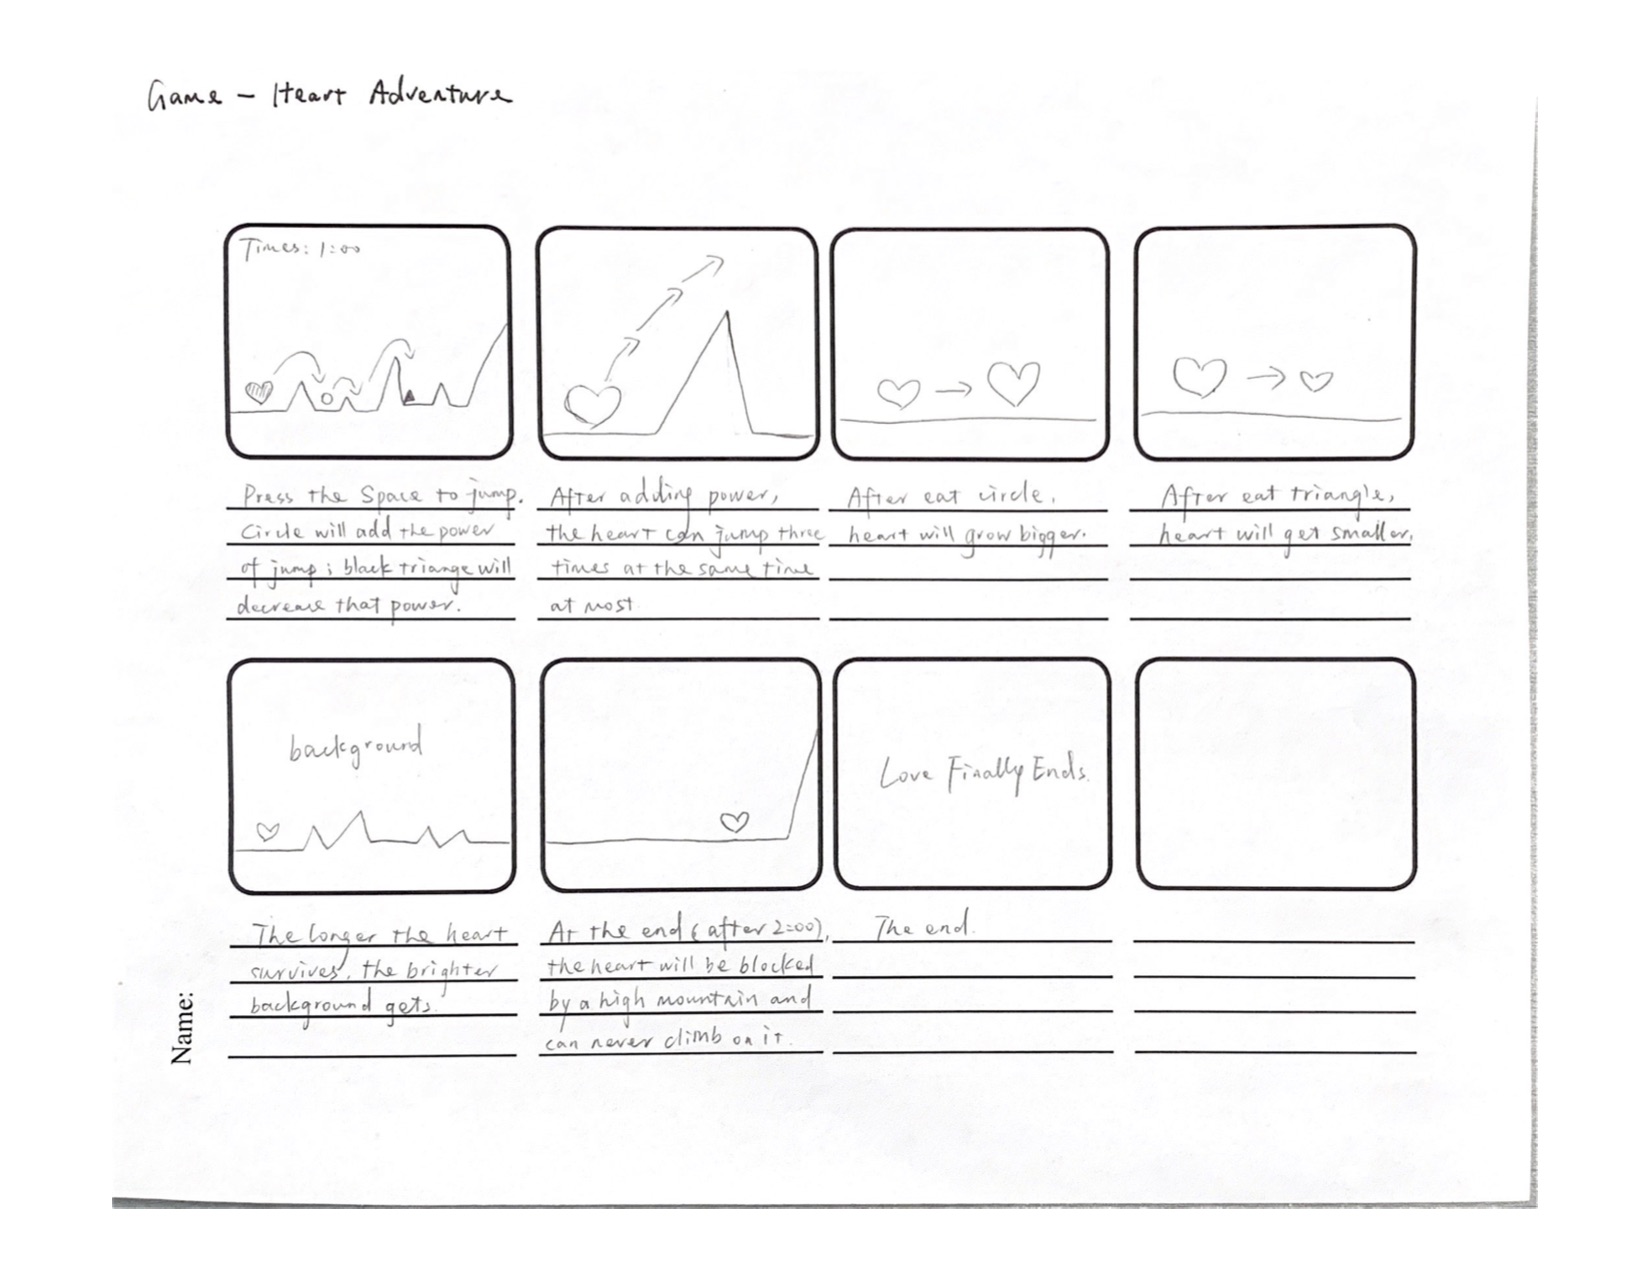 Game - Heart Adventure
Times: 1:00
Press the Space to jump.
Circle will add the power
of jump; black triange will
decrease that power.
After adding power,
the heart can jump three
times at the same time
at most
After eat circle,
heart will grow bigger.
After eat triangle,
heart will get smaller.
background
The longer the heart
survives, the brighter
background gets.
At the end (after 2:00),
the heart will be blocked
by a high mountain and
can never climb on it.
Love Finally Ends.
The end.
Name: